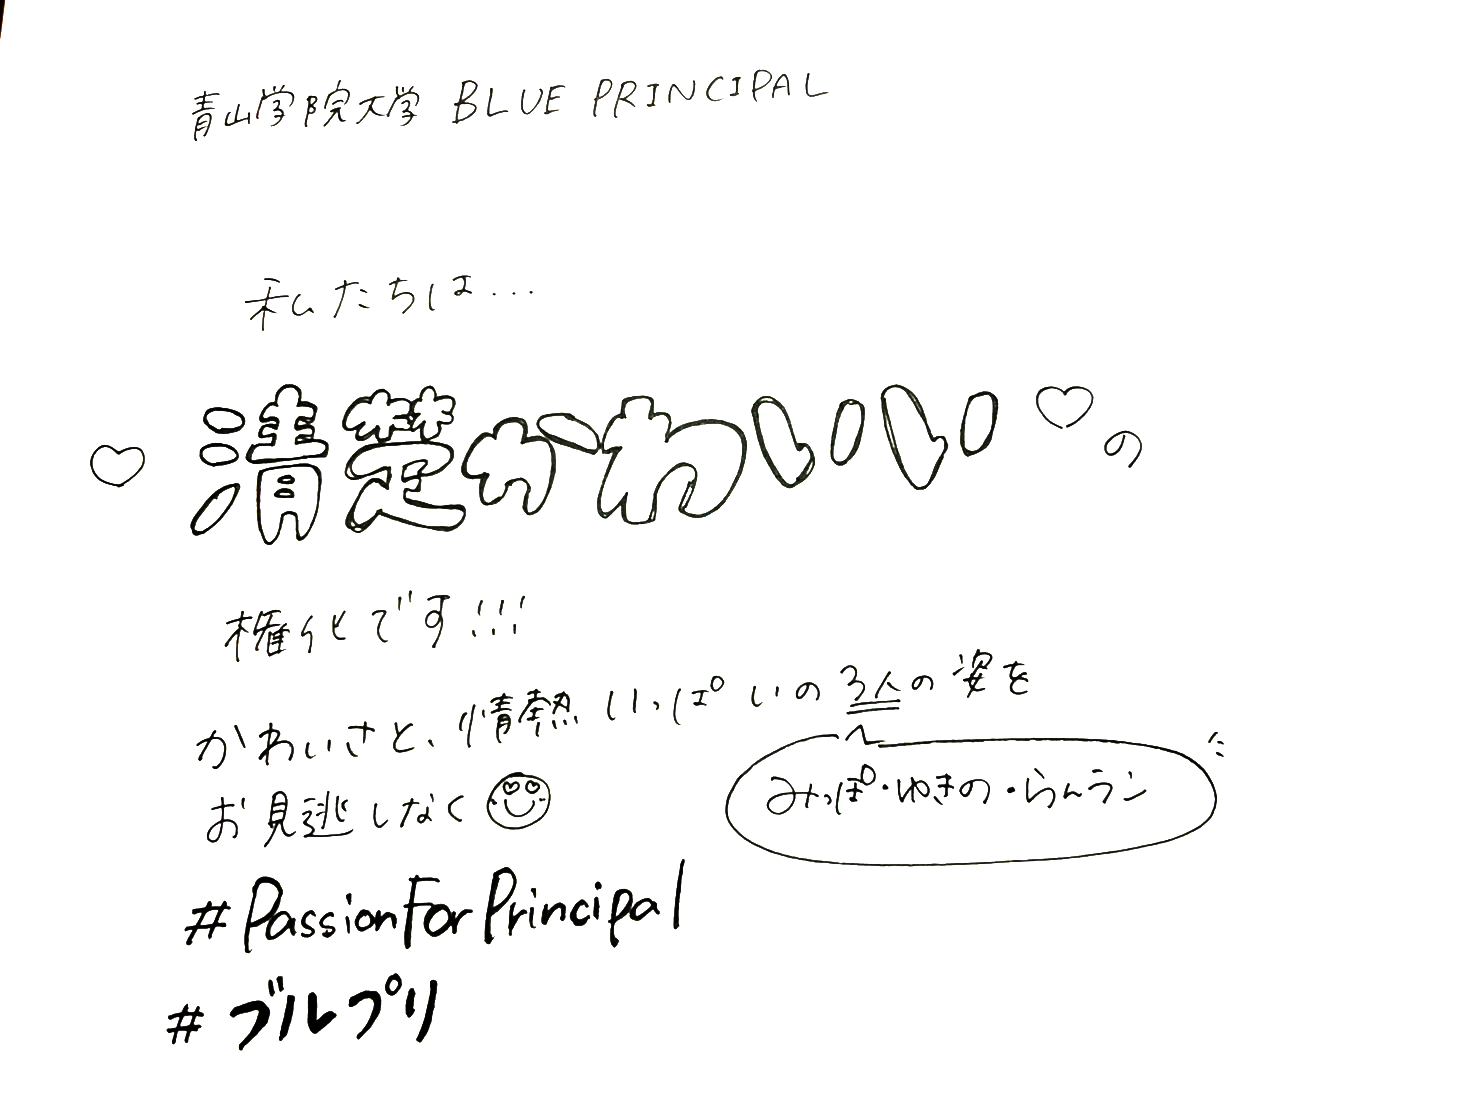 青山学院大学 BLUE PRINCIPAL
私たちは...
♡清楚かわいい♡の
権化です!!!
かわいさと、情熱いっぱいの3人の姿を
みっぽ・ゆきの・らんラン
お見逃しなく
#PassionForPrincipal
#ブルプリ